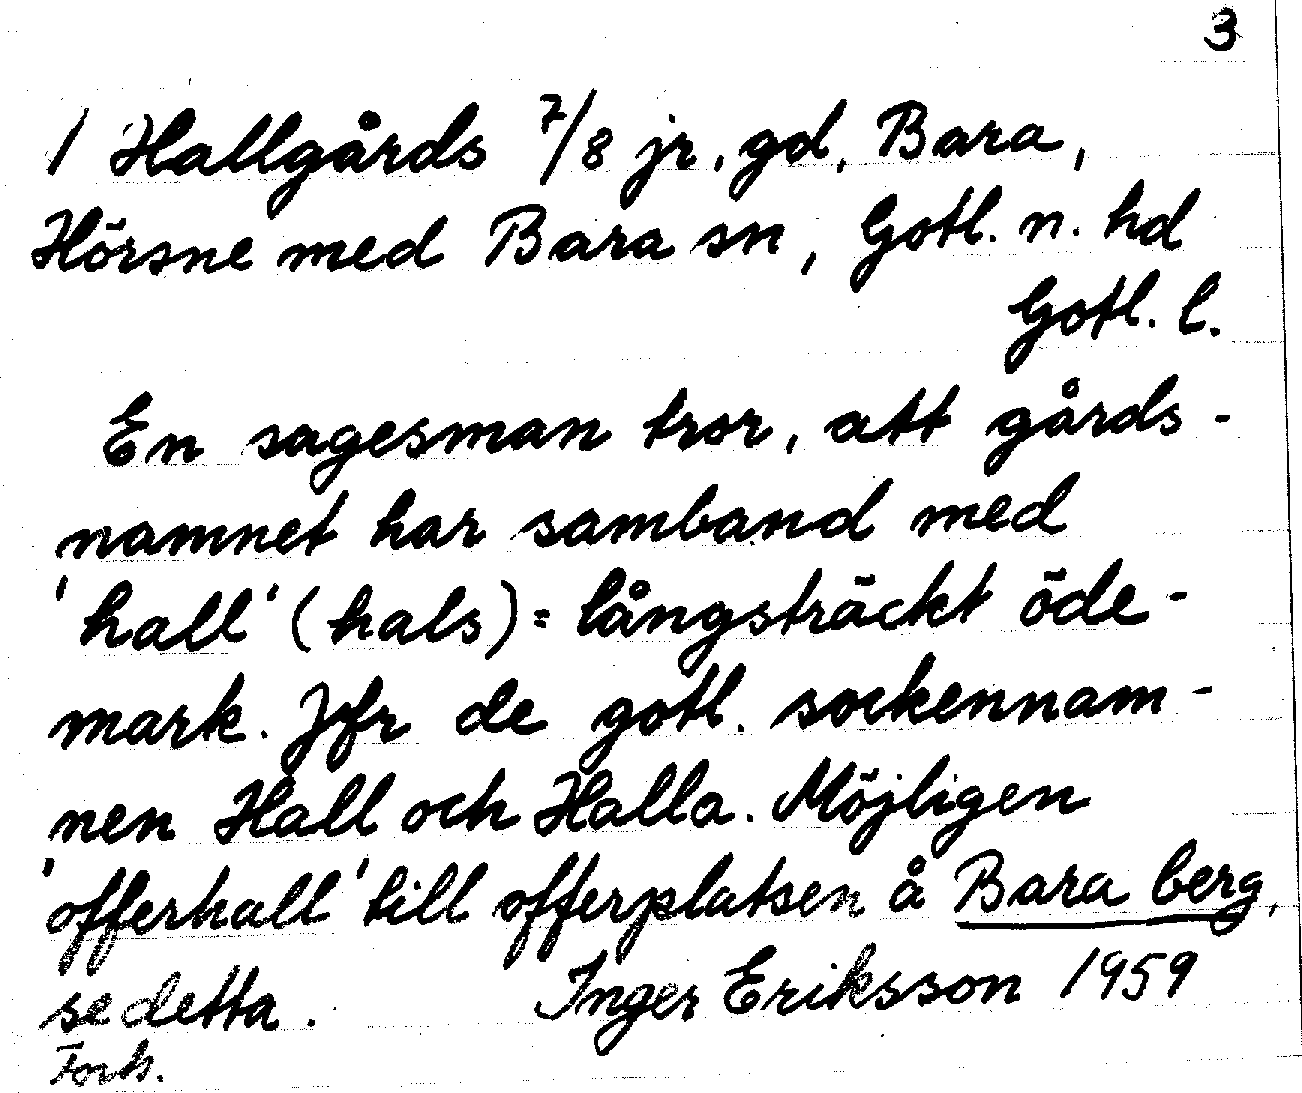 3
1 Hallgårds 7/8 jr. gd, Bara,
Hörsne med Bara sn, Gotl. n. hd
Gotl. l.
En sagesman tror, att gårds-
namnet har samband med
'hall' (hals) = långsträckt öde-
mark. Jfr de gotl. sockennam-
nen Hall och Halla. Möjligen
'offerhall' till offerplatsen å Bara berg,
se detta. Inger Eriksson 1959
Forts.